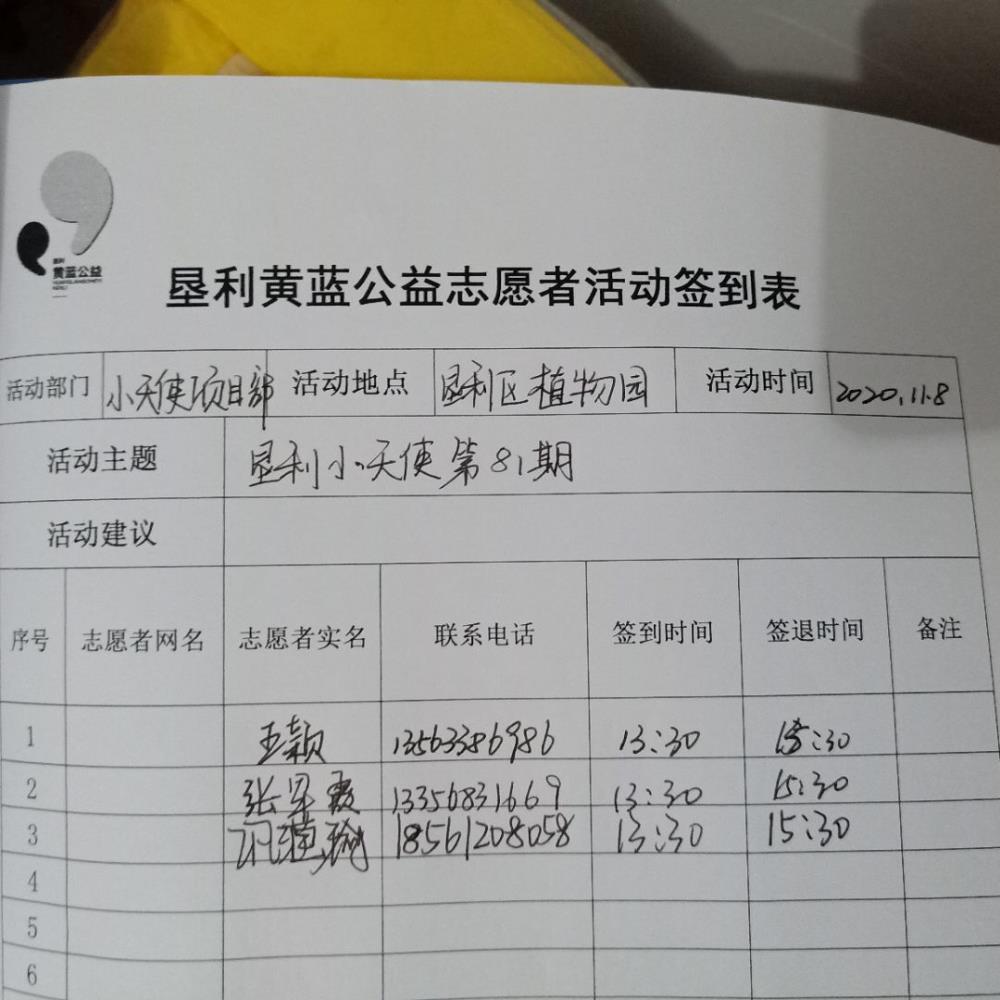 黄蓝公益
垦利黄蓝公益志愿者活动签到表
活动部门 小天使项目部 活动地点 垦利区植物园 活动时间 2020.11.8
活动主题 垦利小天使第81期
活动建议
序号 志愿者网名 志愿者实名 联系电话 签到时间 签退时间 备注
1 王颖 13563386986 13:30 15:30
2 张军霞 13356831669 13:30 15:30
3 18561208058 13:30 15:30
4
5
6